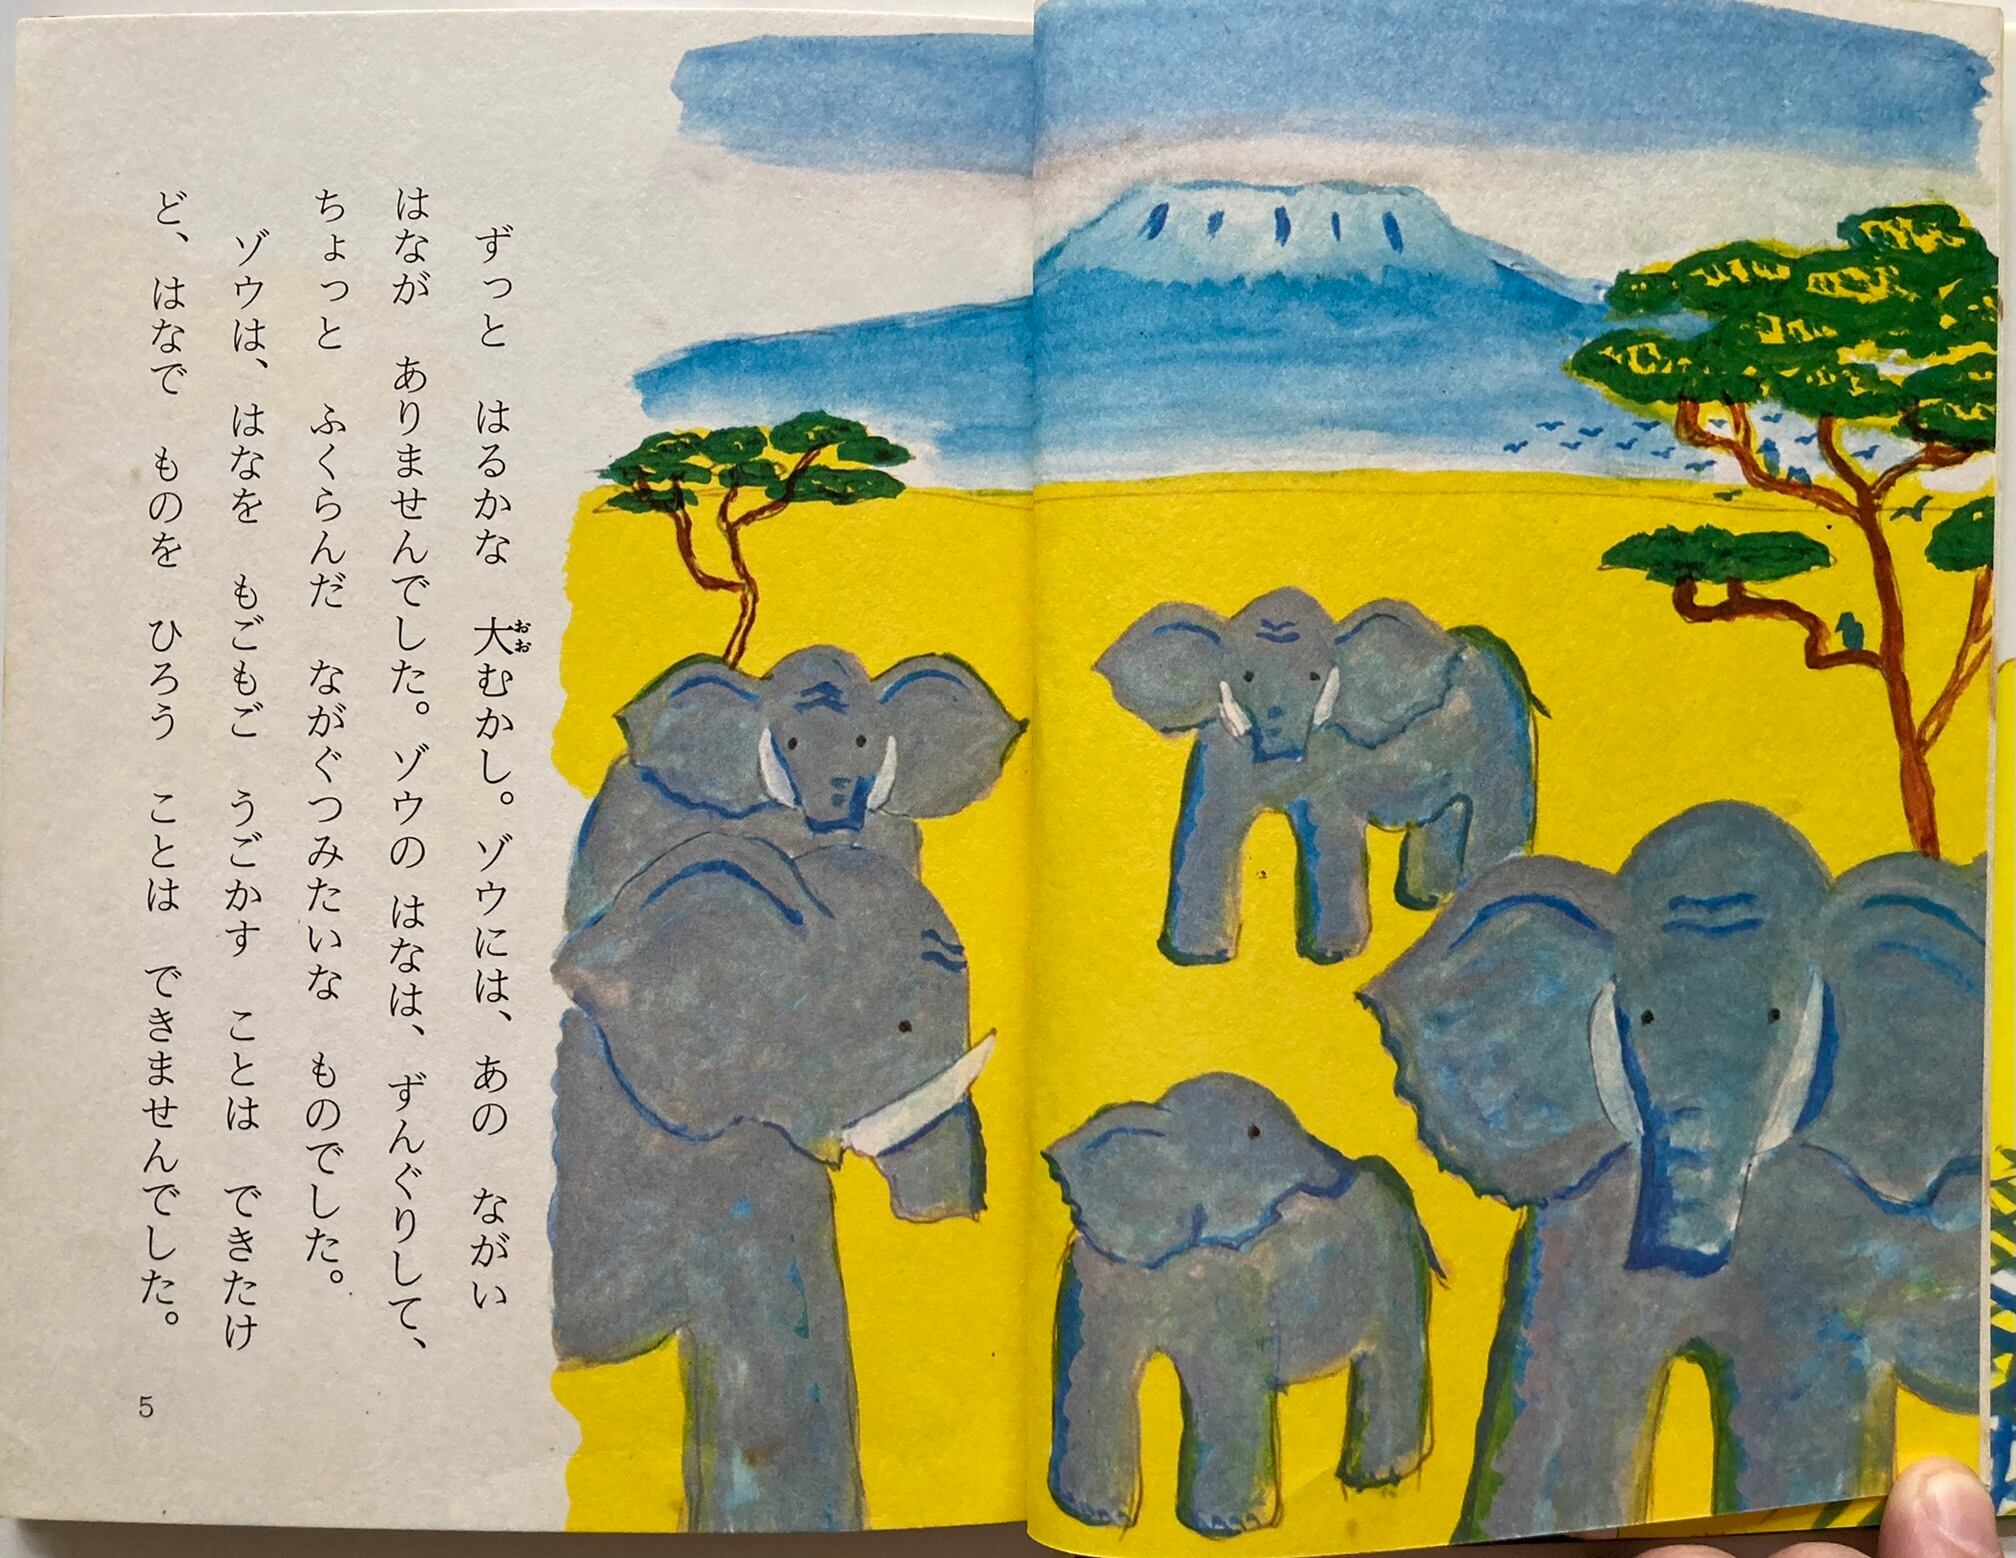 ずっと　はるかな　大むかし。ゾウには、あの　ながい
おお
はなが　ありませんでした。ゾウの　はなは、ずんぐりして、
ちょっと　ふくらんだ　ながぐつみたいな　ものでした。
ゾウは、はなを　もごもご　うごかす　ことは　できたけ
ど、はなで　ものを　ひろう　ことは　できませんでした。
5